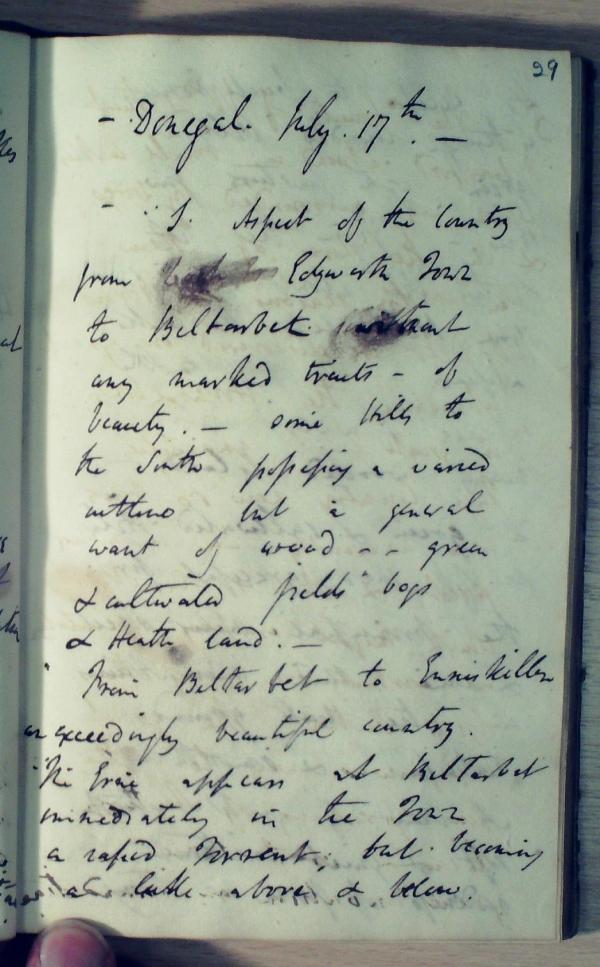 29
- Donegal. July. 17th. -
- S. Aspect of the Country
from Edgworth Town
to Beltarbet. without
any marked traits - of
beauty. - some Hills to
the South possessing a varied
outline but a general
want of wood - - green
& cultivated fields bogs
& Heath land. -
From Beltarbet to Enniskillen
an exceedingly beautiful country.
The Erne appears at Beltarbet
immediately in the Town
a rapid Torrent; but becoming
a lake above & below.